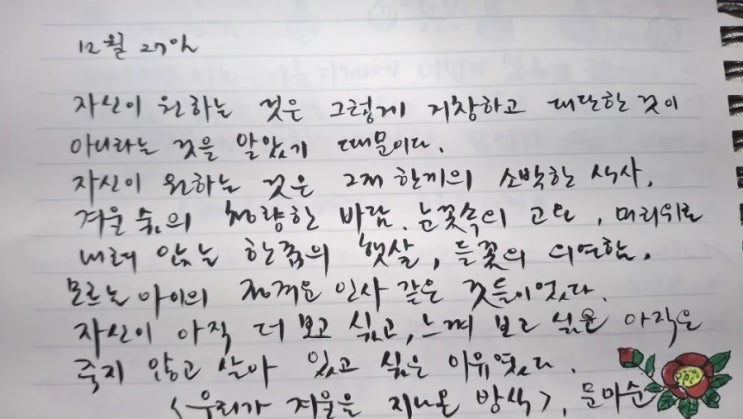 12월 27일
자신이 원하는 것은 그렇게 거창하고 대단한 것이
아니라는 것을 알았기 때문이다.
자신이 원하는 것은 그저 한끼의 소박한 식사,
겨울 숲의 청량한 바람, 눈꽃속의 고요, 머리위로
내려 앉는 한줌의 햇살, 들꽃의 의연함,
모르는 아이의 정겨운 인사 같은 것들이었다.
자신이 아직 더 보고 싶고, 느껴 보고 싶은 아직은
죽지 않고 살아 있고 싶은 이유였다.
<우리가 겨울을 지나온 방식>, 문미순